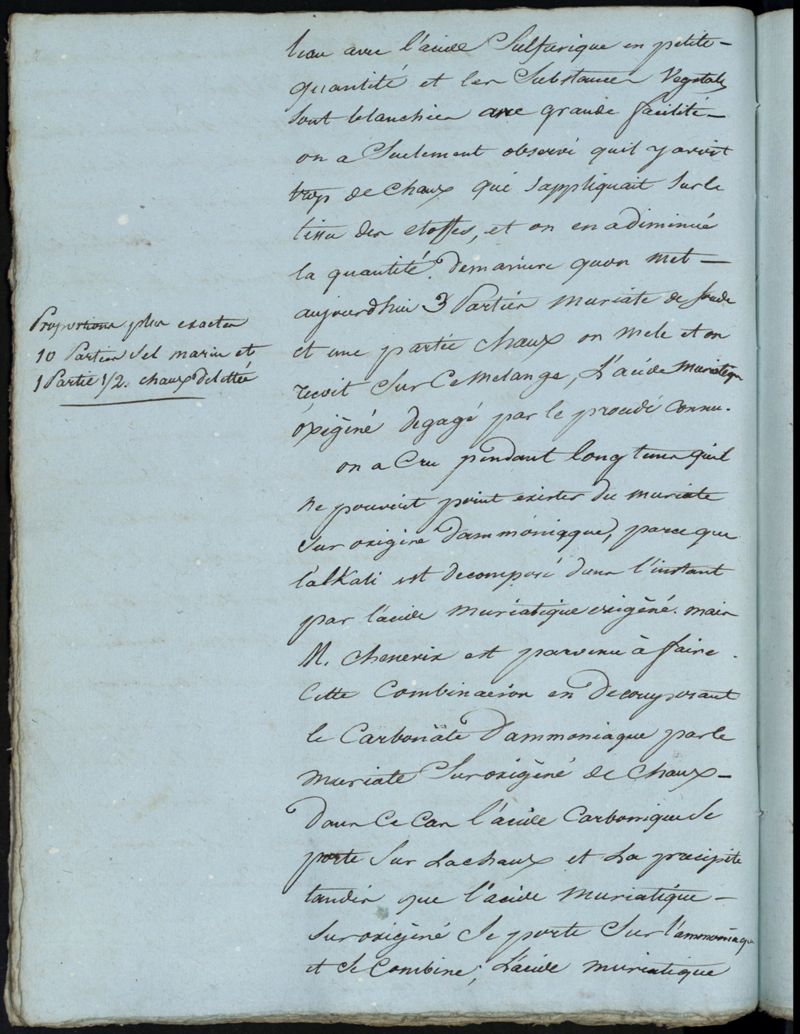 l'eau avec l'acide Sulfurique en petite-
quantité et les Substances Vegetales
sont blanchies avec grande facilité-
on a Seulement observé quil y avoit
trop de Chaux qui s'appliquait sur le
tissu des etoffes, et on en a diminué
la quantité. de maniere quon met-
aujourdhui 3 Parties muriate de soude
et une partie chaux on mele et on
reçoit sur ce melange, L'acide muriatiqu
oxigéné degagé par le procedé connu.
on a Cru pendant longtems quil
ne pouvoit point exister du muriate
sur oxigéné d'ammoniaque, parce que
l'alkali est decomposé dans l'instant
par l'acide muriatique oxigéné. mais
M. chenevix est parvenu à faire
cette combinaison en decomposant
le Carbonate d'ammoniaque par le
muriate Suroxigéné de chaux-
dans ce cas l'acide Carbonique se
porte sur la chaux et la precipite
tandis que l'acide muriatique-
suroxigéné se porte sur l'ammoniaque
et se combine; L'acide muriatique
Proportions plus exactes
10 Parties Sel marin et
1 Partie 1/2. chaux delitée